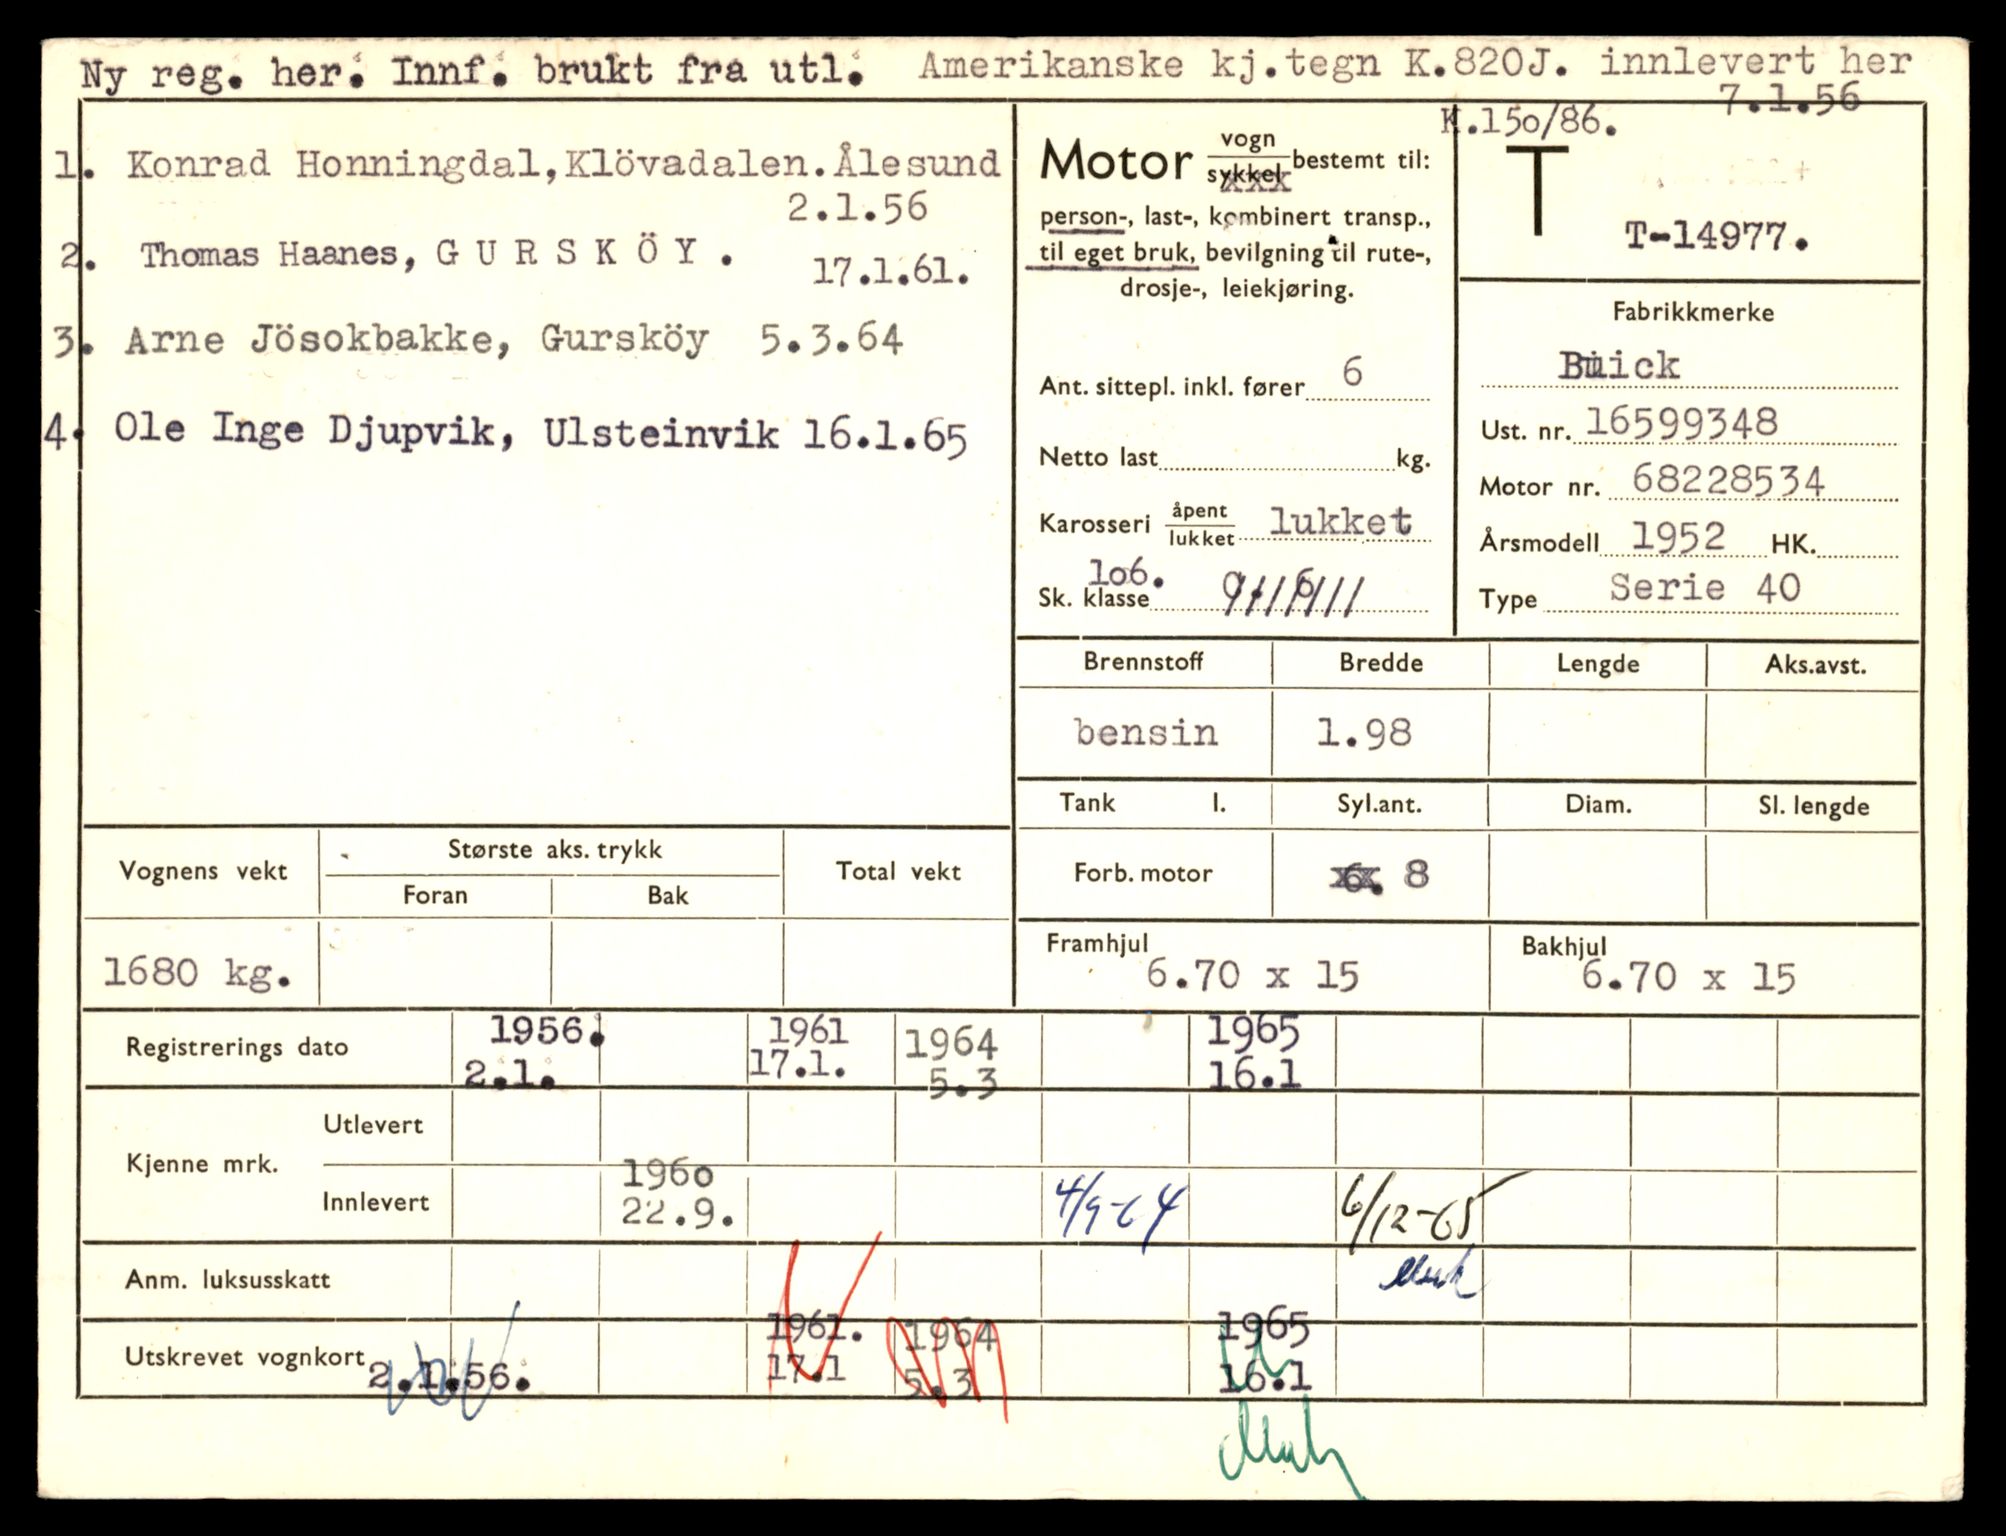 Ny reg. her. Innf. brukt fra utl. Amerikanske kj.tegn K.820J. innlevert her
7.1.56
1. Konrad Honningdal, Klövadalen. Ålesund
2.1.56
2. Thomas Haanes, G U R S K Ö Y .
17.1.61.
3. Arne Jösokbakke, Gursköy 5.3.64
4. Ole Inge Djupvik, Ulsteinvik 16.1.65
Motor vogn
sykkel bestemt til:
person-, last-, kombinert transp.,
til eget bruk, bevilgning til rute-,
drosje-, leiekjøring.
Ant. sittepl. inkl. fører 6
Netto last kg.
Karosseri åpent
lukket lukket
106.
Sk. klasse
K.150/86.
T
T-14977.
Fabrikkmerke
Buick
Ust. nr. 16599348
Motor nr. 68228534
Årsmodell 1952 HK.
Type Serie 40
Brennstoff Bredde Lengde Aks.avst.
bensin 1.98
Tank l. Syl.ant. Diam. Sl. lengde
Forb. motor 8
Vognens vekt Største aks. trykk Total vekt
Foran Bak
1680 kg.
Framhjul Bakhjul
6.70 x 15 6.70 x 15
Registrerings dato 1956. 1961 1964 1965
2.1. 17.1. 5.3 16.1
Kjenne mrk. Utlevert
Innlevert 1960 4/9-64 6/12-65
22.9.
Anm. luksusskatt
Utskrevet vognkort 1961. 1964 1965
2.1.56. 17.1 5.3 16.1